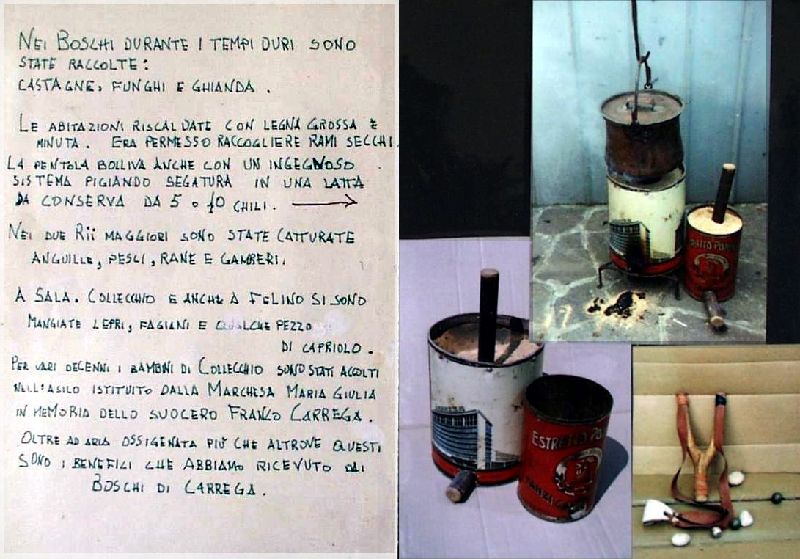 NEI BOSCHI DURANTE I TEMPI DURI SONO
STATE RACCOLTE:
CASTAGNE, FUNGHI E GHIANDA.
LE ABITAZIONI RISCALDATE CON LEGNA GROSSA E
MINUTA. ERA PERMESSO RACCOGLIERE RAMI SECCHI.
LA PENTOLA BOLLIVA ANCHE CON UN INGEGNOSO
SISTEMA PIGIANDO SEGATURA IN UNA LATTA
DA CONSERVA DA 5 O 10 CHILI.
NEI DUE RII MAGGIORI SONO STATE CATTURATE
ANGUILLE, PESCI, RANE E GAMBERI.
A SALA. COLLECCHIO E ANCHE A FELINO SI SONO
MANGIATE LEPRI, FAGIANI E QUALCHE PEZZO
DI CAPRIOLO.
PER VARI DECENNI I BAMBINI DI COLLECCHIO SONO STATI ACCOLTI
NELL'ASILO ISTITUITO DALLA MARCHESA MARIA GIULIA
IN MEMORIA DELLO SUOCERO FRANCO CARREGA.
OLTRE AD ARIA OSSIGENATA PIÙ CHE ALTROVE QUESTI
SONO I BENEFICI CHE ABBIAMO RICEVUTO DAI
BOSCHI DI CARREGA.
ESTRATTO